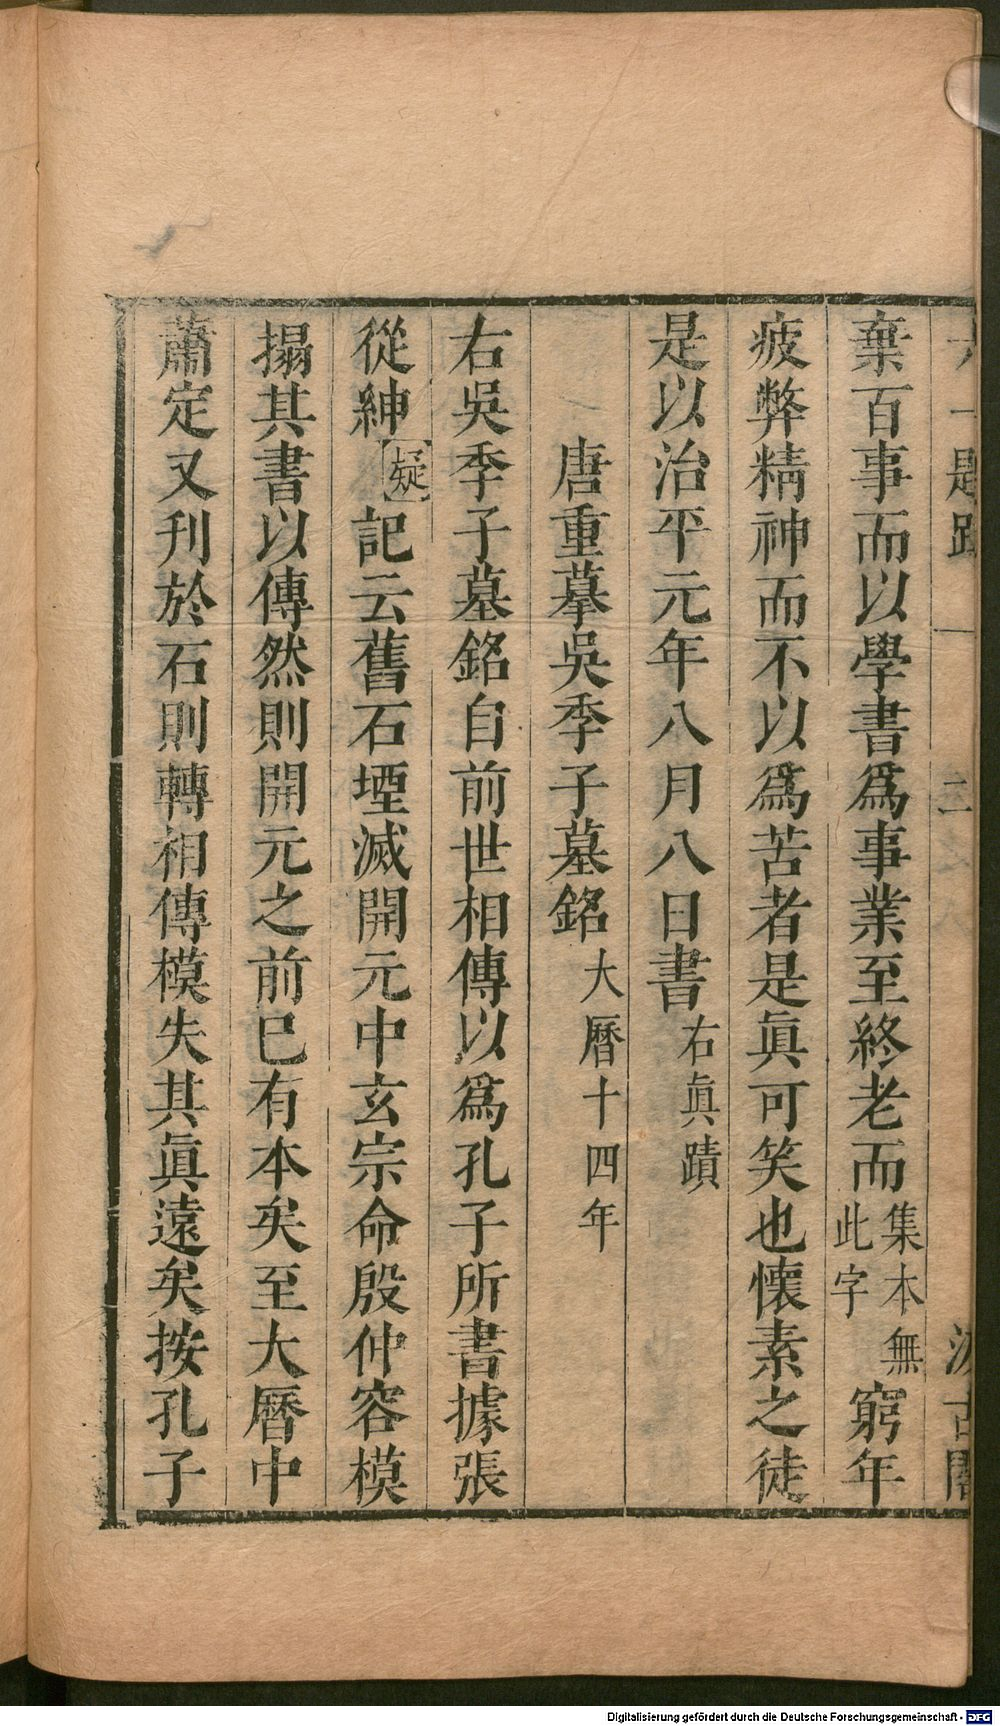 六一題跋 一 二 汲古閣
棄百事而以學書爲事業至終老而集本無此字窮年
疲弊精神而不以爲苦者是眞可笑也懷素之徒
是以治平元年八月八日書右眞蹟
唐重摹吳季子墓銘大曆十四年
右吳季子墓銘自前世相傳以爲孔子所書據張
從紳疑記云舊石堙滅開元中玄宗命殷仲容模
搨其書以傳然則開元之前巳有本矣至大曆中
蕭定又刊於石則轉相傳模失其眞遠矣按孔子
Digitalisierung gefördert durch die Deutsche Forschungsgemeinschaft - DFG